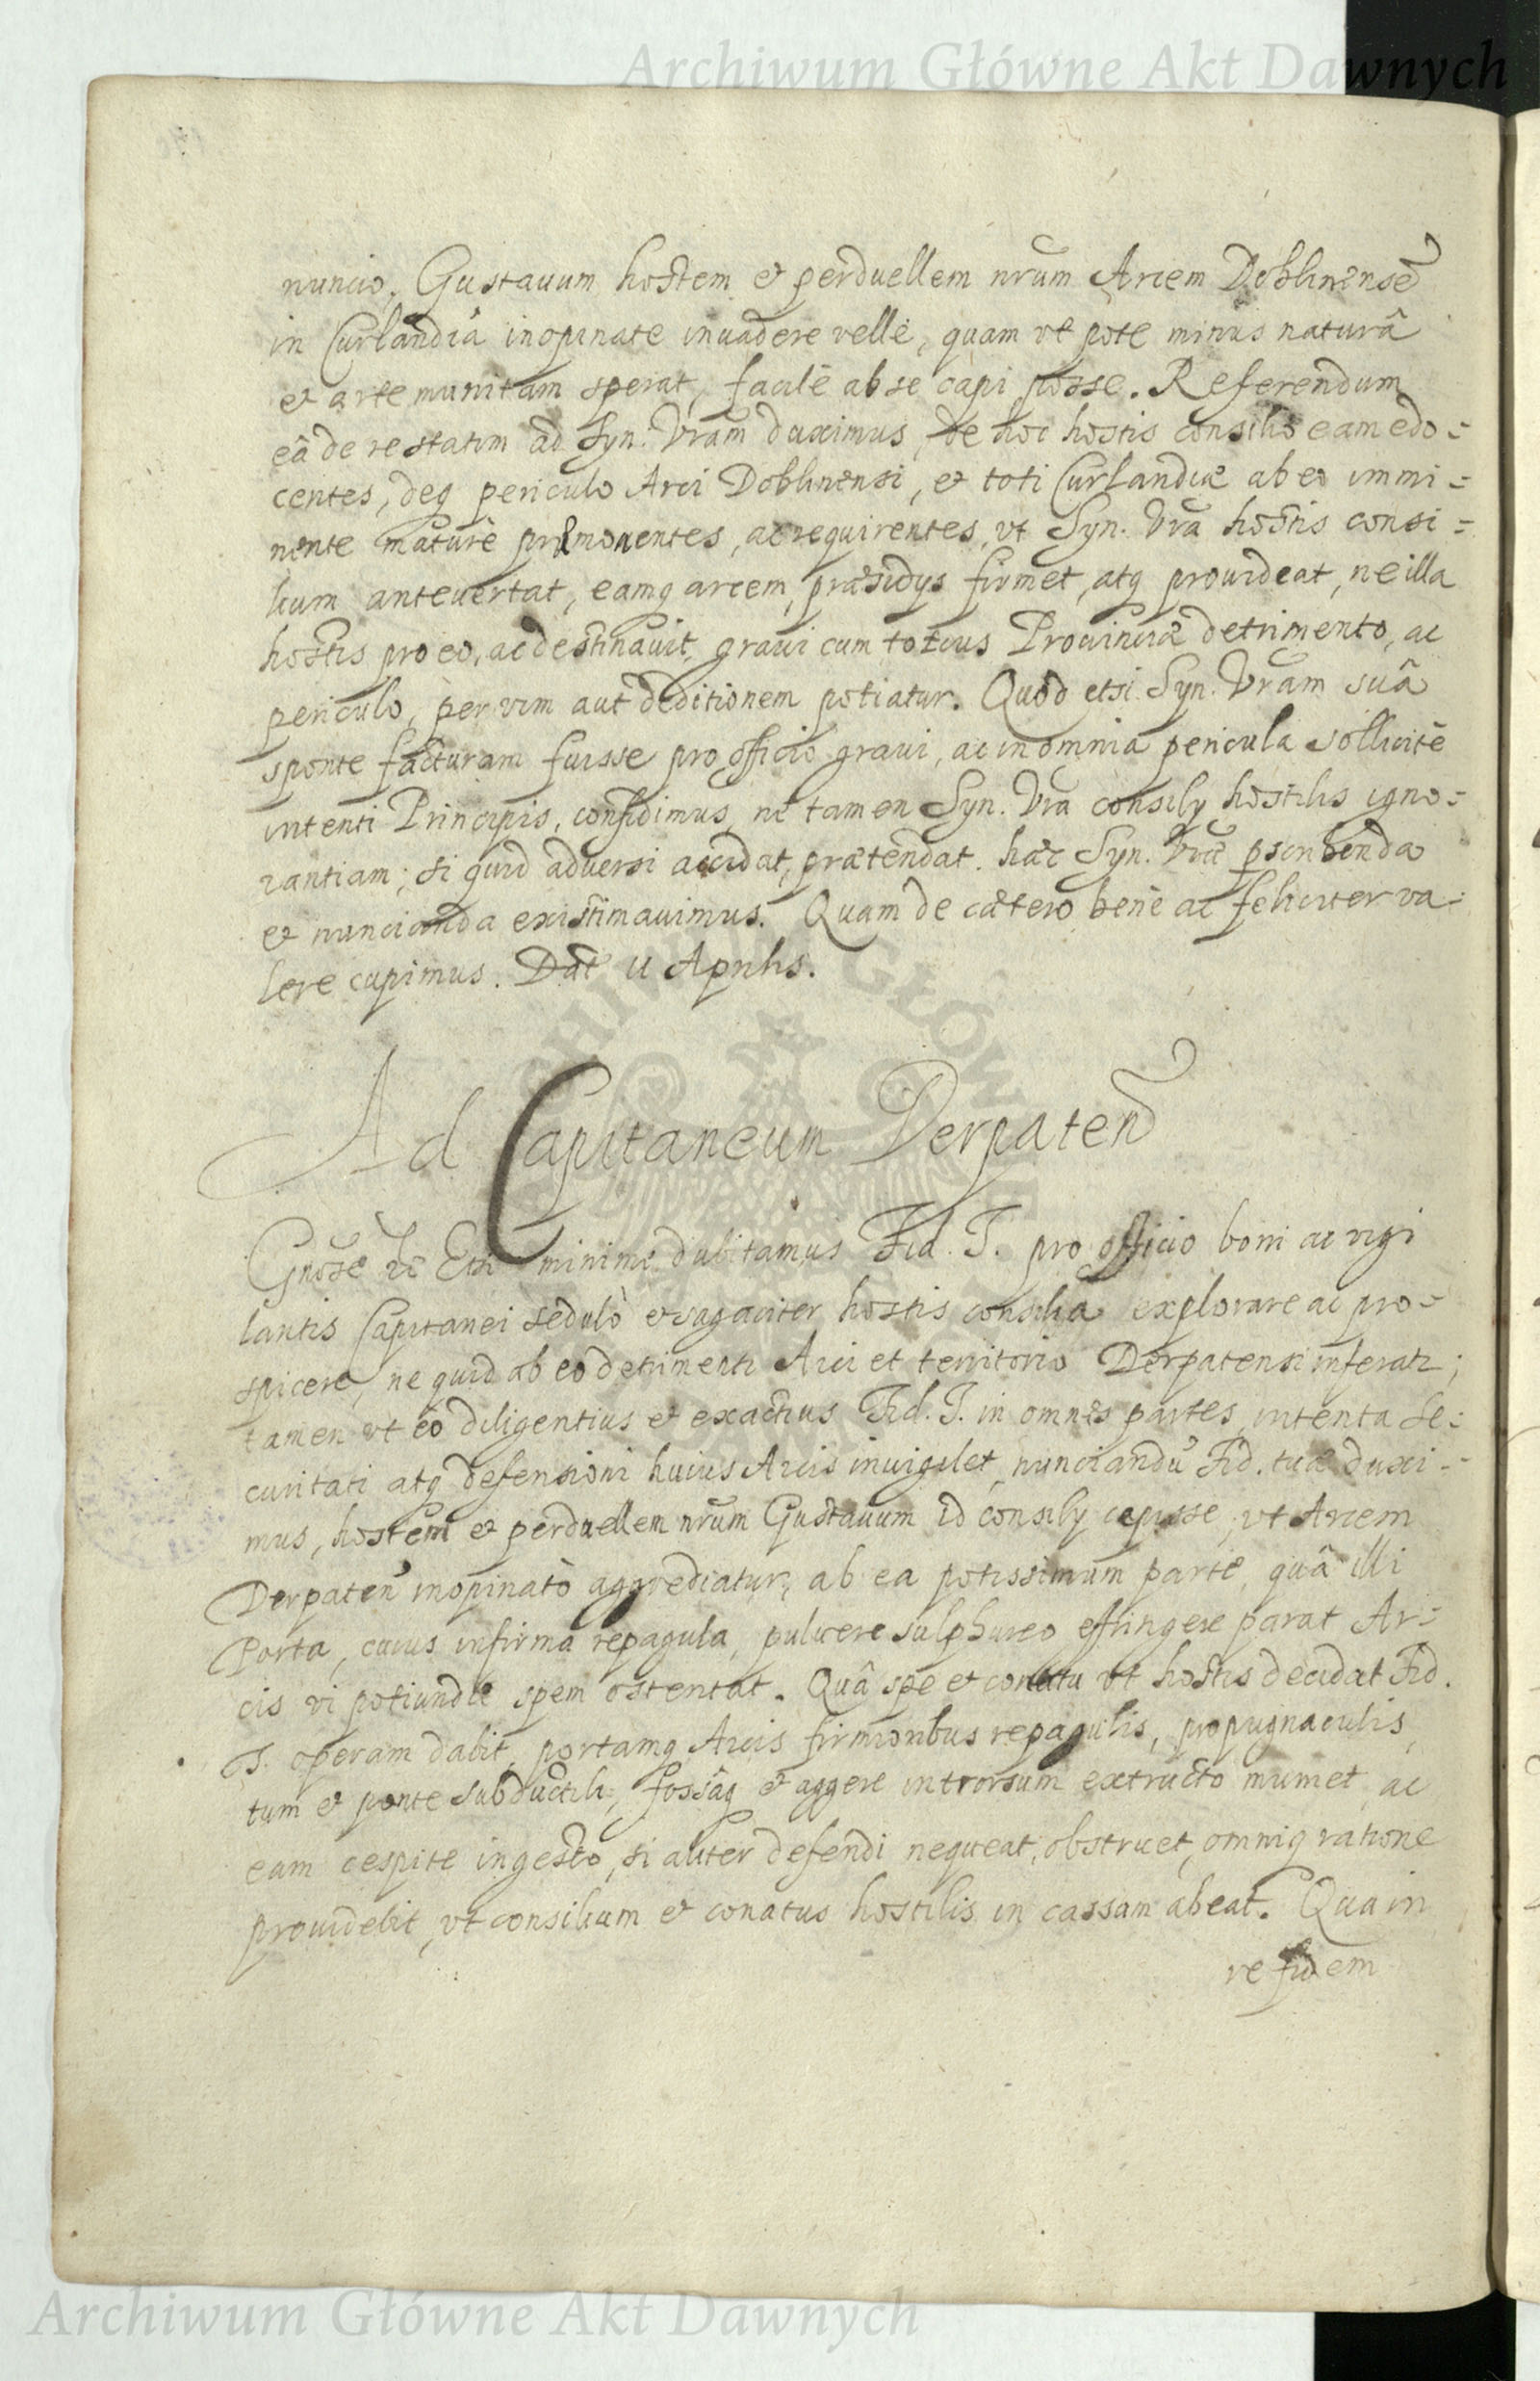 Archiwum Główne Akt Dawnych
nuncio. Gustauum hostem et perduellem nrũm Arcem Doblinensẽ
in Curlandia inopinate inuadere velle, quam vt pote minus naturâ
et arte munitam sperat, facile ab se capi posse. Referendum
eâ de re statim ad Syn. Vrãm duximus, de hoc hostis consilio eam edo=
centes, deq periculo Arci Doblinensi, et toti Curlandiæ ab eo immi=
nente mature præmonentes, ac requirentes, vt Syn. Vrã hostis consi=
lium anteuertat, eamq arcem, præsidys firmet, atq prouideat, ne illa
hostis pro eo, ac destinauit, graui cum totius Prouinciæ detrimento, ac
periculo, per vim aut deditionem potiatur. Quod etsi Syn. Vrãm suâ
sponte facturam fuisse pro officio graui, ac in omnia pericula sollicitè
intenti Principis, confidimus, ne tamen Syn. Vrã consily hostilis igno=
rantiam, si quid aduersi accidat, prætendat. hæc Syn. Vræ pscribenda
et nuncianda existimauimus. Quam de cætero bene ac feliciter va=
lere cupimus. Dat 11 Aprilis.
Ad Capitaneum Derpateñ
Gnose minime dubitamus Fid. T. pro officio boni ac vigi
lantis Capitanei sedulò et sagaciter hostis consilia explorare ac pro=
spicere, ne quid ab eo detrimenti Arci et territorio Derpatensi inferatr;
tamen vt eo diligentius et exactius Fid. T. in omnes partes intenta se=
curitati atq defensioni huius Arcis inuigilet, nunciandũ Fid. tuæ duxi=
mus, hostem et perduellem nrũm Gustauum id consily cepisse, vt Arcem
Derpateñ inopinatò aggrediatur, ab ea potissimum parte, quâ illi
Porta, cuius infirma repagula, puluere sulphureo effringere parat Ar=
cis vi potiundæ spem ostentat. Quâ spe et conatu vt hostis decidat Fid.
T. operam dabit, portamq Arcis firmioribus repagulis, propugnaculis,
tum et ponte subductili, fossâq et aggere introrsum extructo muniet, ac
eam cespite ingesto, si aliter defendi nequeat, obstruet, omniq ratione
prouidebit, vt consilium et conatus hostilis in cassam abeat. Qua in
re fidem
Archiwum Główne Akt Dawnych